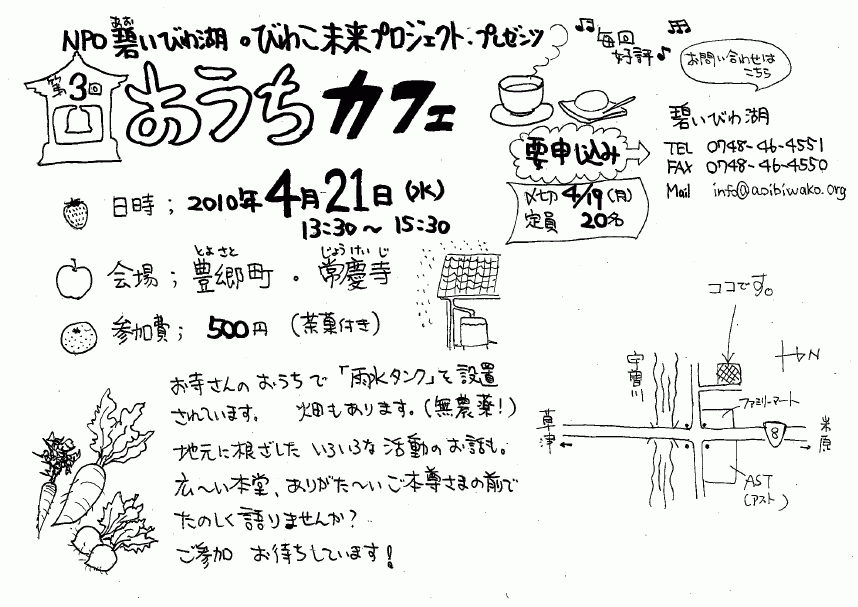 NPO 碧いびわ湖 。びわこ未来プロジェクト・プレゼンツ
あお
第3回
おうちカフェ
毎回
好評♪
お問い合わせは
こちら
碧いびわ湖
TEL 0748-46-4551
FAX 0748-46-4550
Mail info@aoibiwako.org
要申し込み
〆切 4/19 (月)
定員 20名
日時; 2010年4月21日(水)
13:30〜15:30
とよさと じょうけいじ
会場; 豊郷町・常慶寺
参加費; 500円 (茶菓付き)
お寺さんのおうちで「雨水タンク」を設置
されています。 畑もあります。(無農薬!)
地元に根ざした いろいろな活動のお話も。
広〜い本堂、ありがた〜いご本尊さまの前で
たのしく語りませんか?
ご参加 お待ちしています!
ココです。
N
宇曽川
ファミリーマート
草津
8
米原
AST
(アスト)